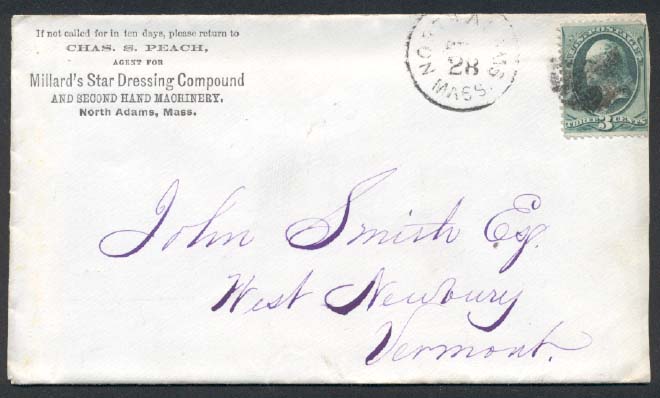 If not called for in ten days, please return to
CHAS. S. PEACH,
AGENT FOR
Millard's Star Dressing Compound
AND SECOND HAND MACHINERY,
North Adams, Mass.
NORTH ADAMS
28
MASS.
THREE 3 CENTS
John Smith Esq.
West Newbury
Vermont.